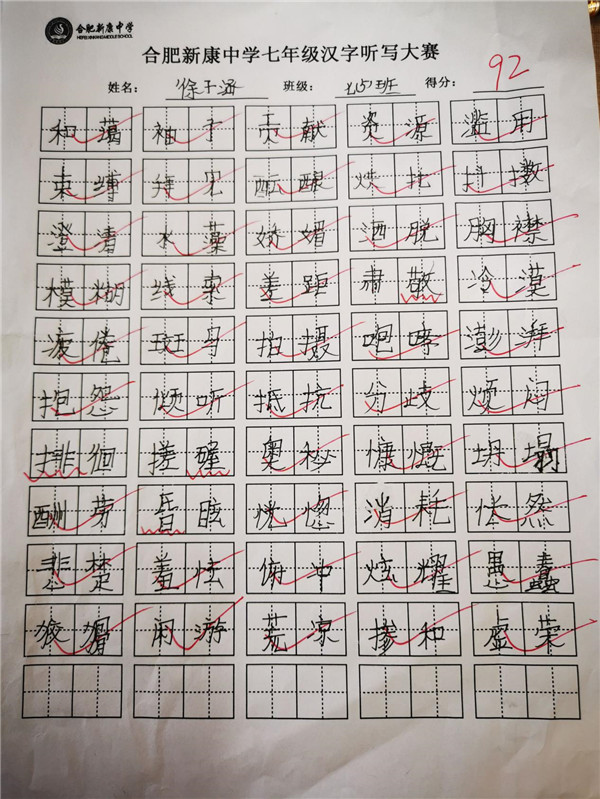 合肥新康中学
HEFEI XINKANG MIDDLE SCHOOL
合肥新康中学七年级汉字听写大赛
姓名： 徐子涵 班级： 七(5)班 得分： 92
和蔼 袖子 贡献 资源 滥用
束缚 拜见 酝酿 烘托 抖擞
澄清 水藻 娇媚 洒脱 胸襟
模糊 线索 差距 肃敬 冷漠
疲倦 斑马 拍摄 咆哮 澎湃
抱怨 倾听 抵抗 分歧 烦闷
排徊 搓 奥秘 慷慨 坍塌
酬劳 昏眩 恍惚 消耗 怅然
悲楚 羞怯 俯冲 炫耀 愚蠢
狡猾 闲游 荒凉 掺和 虚荣